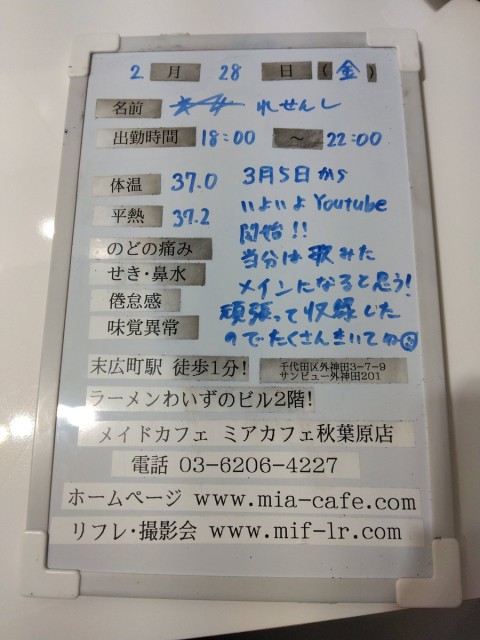 2月28日(金)
名前 れせんし
出勤時間 18:00 ～ 22:00
体温 37.0
平熱 37.2
のどの痛み
せき・鼻水
倦怠感
味覚異常
3月5日から
いよいよYoutube
開始!!
当分は歌みた
メインになると思う!
頑張って収録した
のでたくさんきいてね
末広町駅 徒歩1分!
千代田区外神田3-7-9
サンビュー外神田201
ラーメンわいずのビル2階!
メイドカフェ ミアカフェ秋葉原店
電話 03-6206-4227
ホームページ www.mia-cafe.com
リフレ・撮影会 www.mif-lr.com